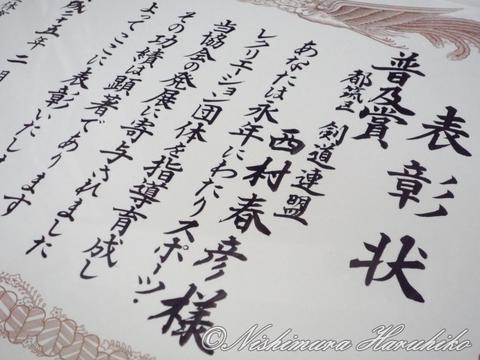 表彰状
普及賞
都筑区 剣道連盟
西村春彦様
あなたは永年にわたりスポーツ・
レクリエーション団体を指導育成し
当協会の発展に寄与されました
その功績は顕著であります
よってここに表彰いたします
成十五年二月
©Nishimura Haruhiko